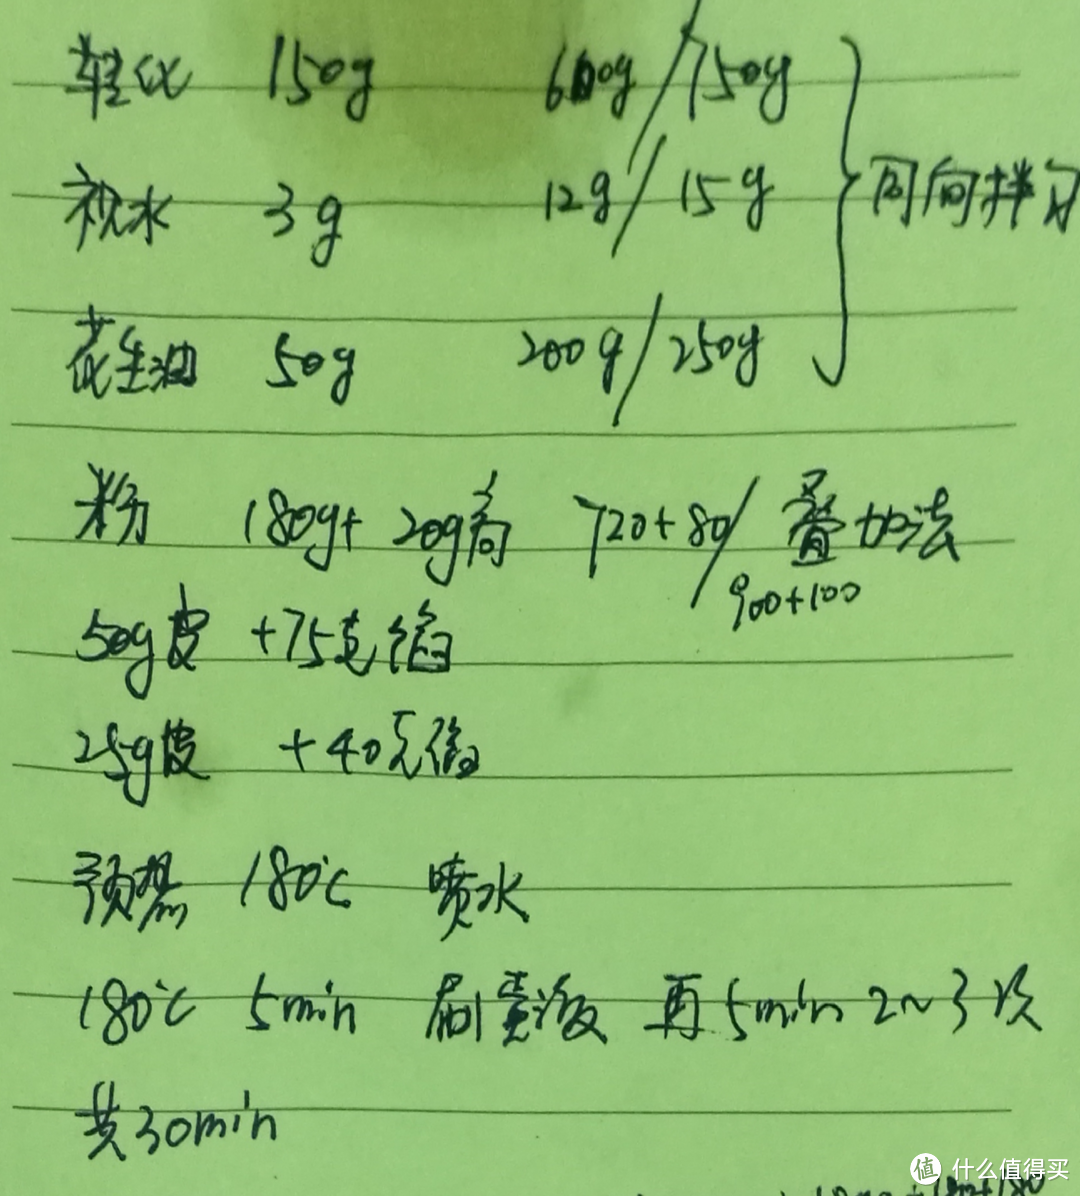 转化 150g 600g/750g
枧水 3g 12g/15g 同向拌匀
花生油 50g 200g/250g
粉 180g+20g高 720+80/ 叠加法
900+100
50g皮 +75克馅
25g皮 +40克馅
预热 180℃ 喷水
180℃ 5min 刷蛋液 再5min 2~3次
共30min
值 什么值得买